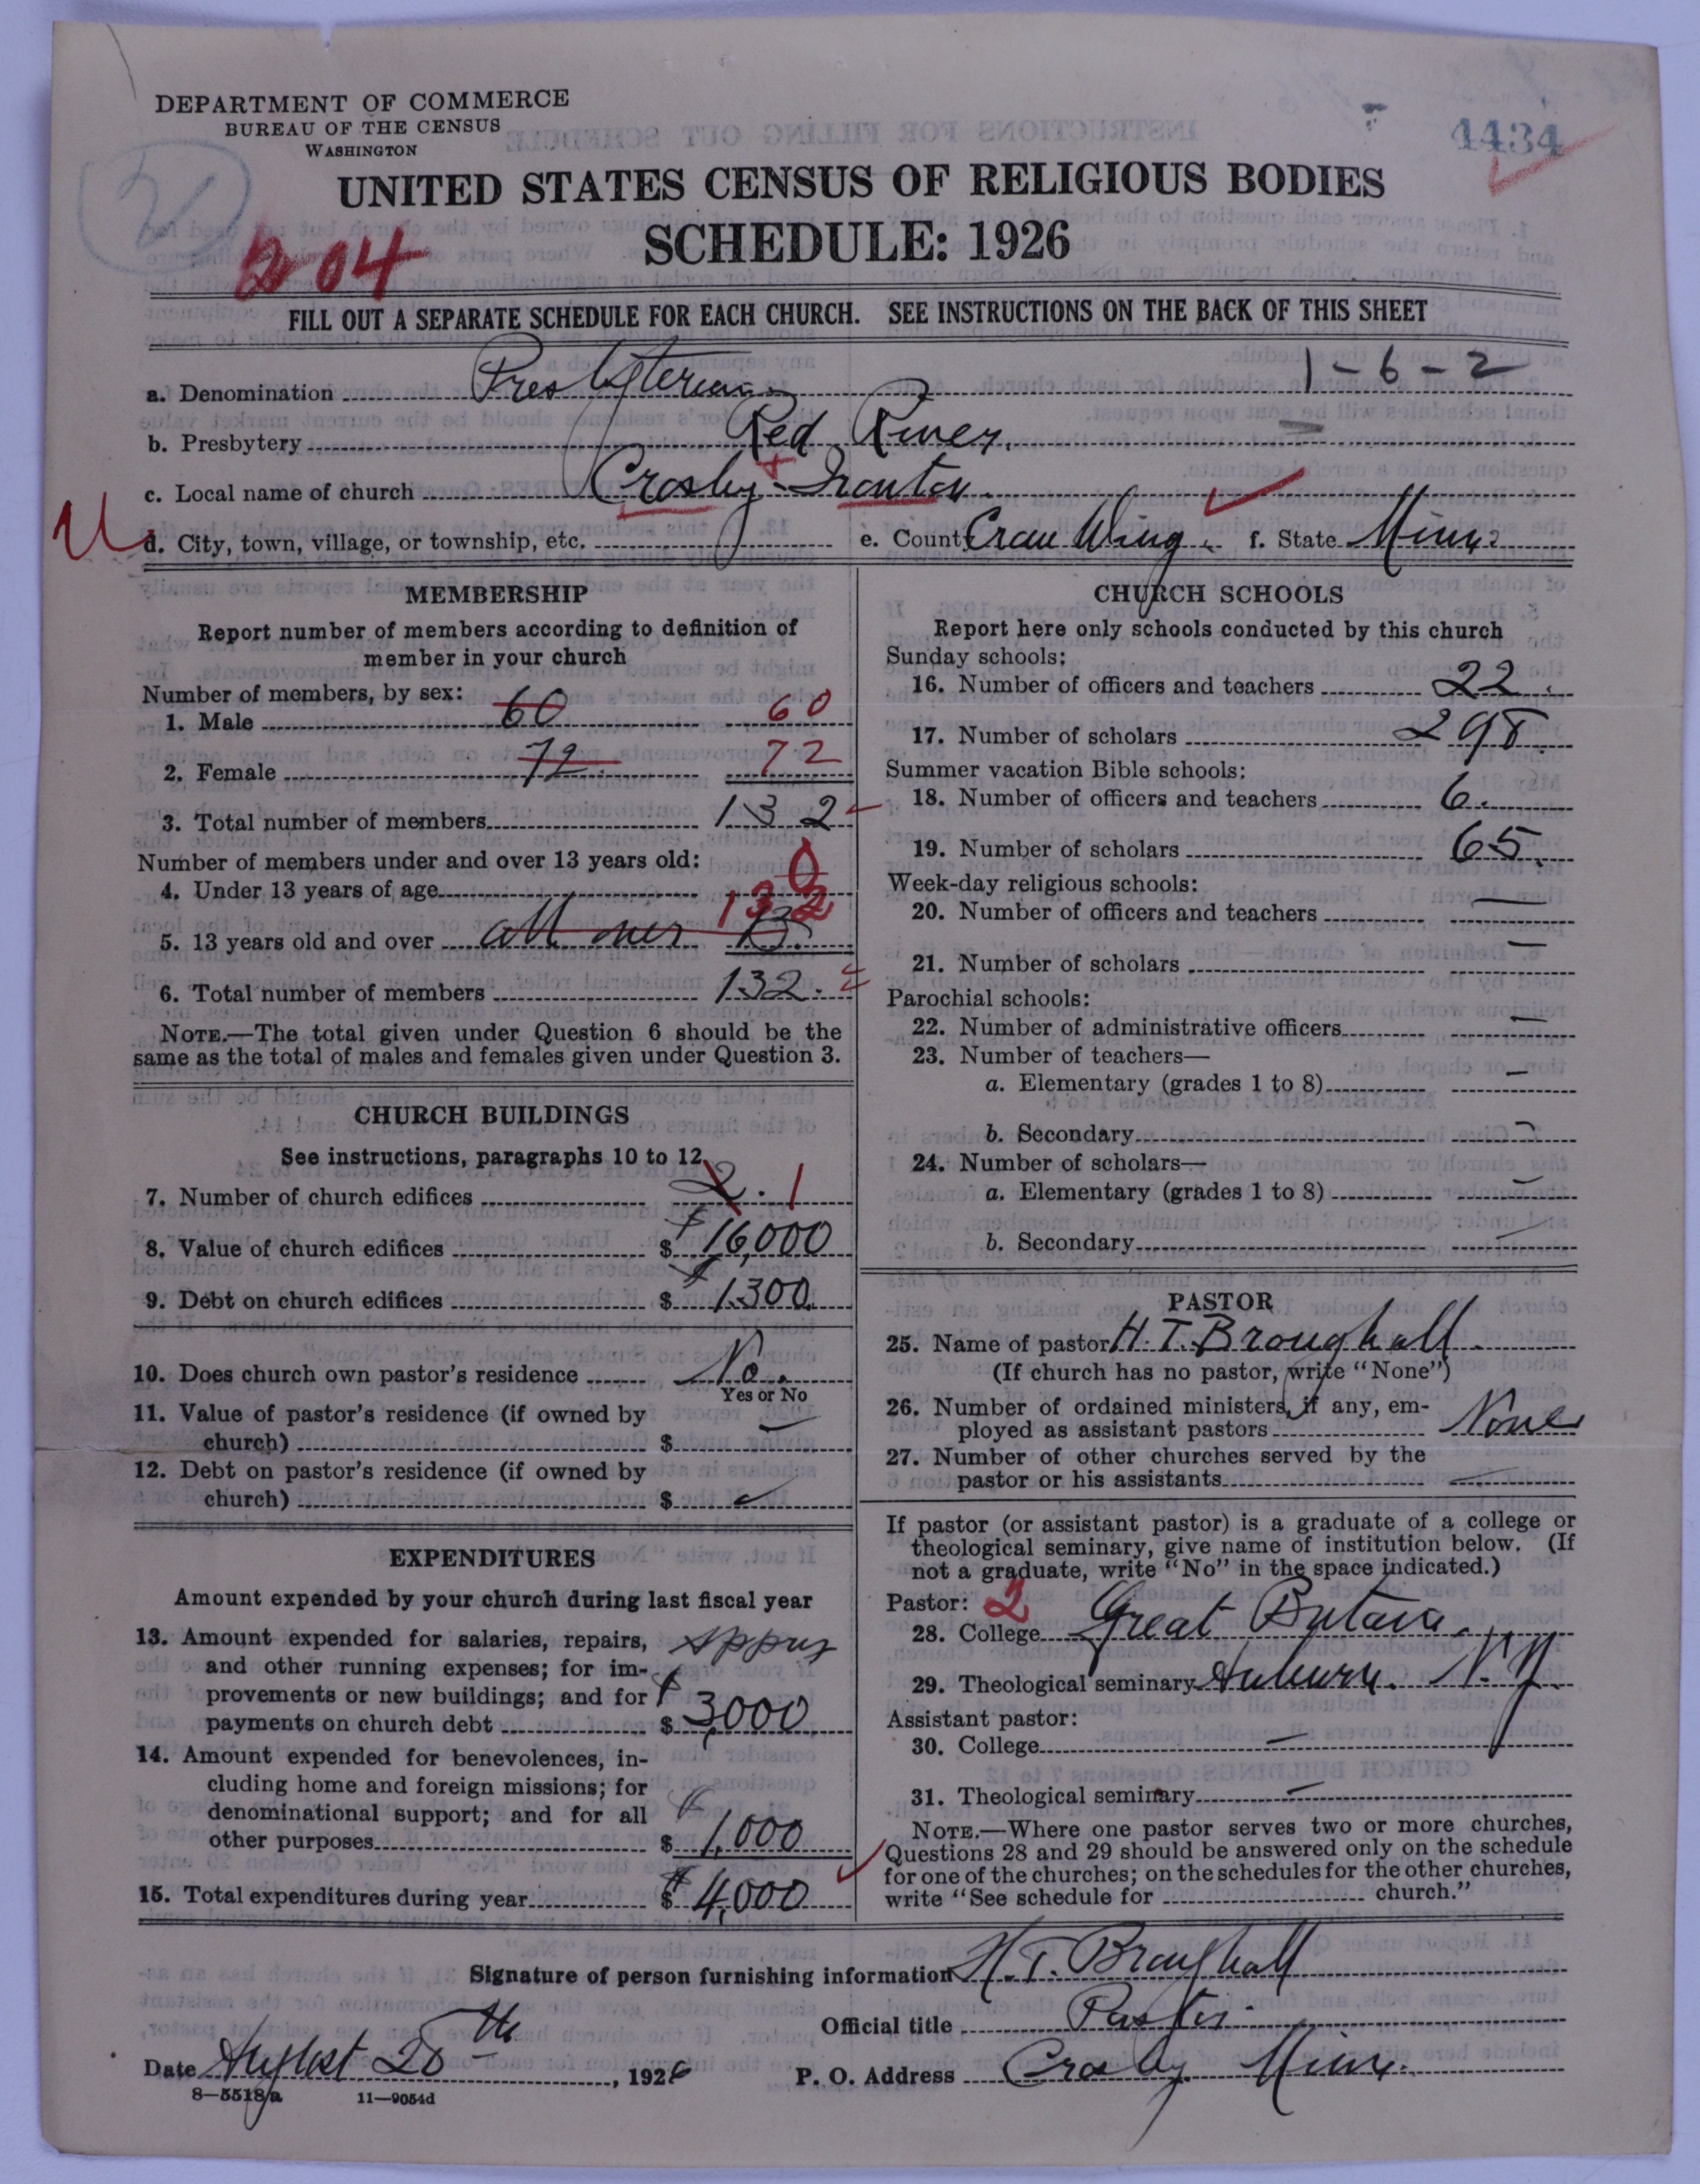 DEPARTMENT OF COMMERCE
BUREAU OF THE CENSUS
WASHINGTON
4434
UNITED STATES CENSUS OF RELIGIOUS BODIES
SCHEDULE: 1926
204
FILL OUT A SEPARATE SCHEDULE FOR EACH CHURCH. SEE INSTRUCTIONS ON THE BACK OF THIS SHEET
1-6-2
a. Denomination Presbyterian
b. Presbytery Red River.
c. Local name of church Crosby + Ironton.
d. City, town, village, or township, etc. e. County Crow Wing. f. State Minn.
MEMBERSHIP
Report number of members according to definition of
member in your church
Number of members, by sex:
1. Male 60 60
2. Female 72 72
3. Total number of members 132
Number of members under and over 13 years old:
4. Under 13 years of age 0
5. 13 years old and over all over 13. 132
6. Total number of members 132.
NOTE.—The total given under Question 6 should be the
same as the total of males and females given under Question 3.
CHURCH BUILDINGS
See instructions, paragraphs 10 to 12
7. Number of church edifices 2. 1
8. Value of church edifices $ $16,000
9. Debt on church edifices $ $1300.
10. Does church own pastor's residence No.
Yes or No
11. Value of pastor's residence (if owned by
church) $ —
12. Debt on pastor's residence (if owned by
church) $
EXPENDITURES
Amount expended by your church during last fiscal year
13. Amount expended for salaries, repairs,
and other running expenses; for im-
provements or new buildings; and for
payments on church debt $ $3,000
14. Amount expended for benevolences, in-
cluding home and foreign missions; for
denominational support; and for all
other purposes $ 1,000
15. Total expenditures during year $ $4,000
CHURCH SCHOOLS
Report here only schools conducted by this church
Sunday schools:
16. Number of officers and teachers 22.
17. Number of scholars 298.
Summer vacation Bible schools:
18. Number of officers and teachers 6.
19. Number of scholars 65.
Week-day religious schools:
20. Number of officers and teachers —
21. Number of scholars —
Parochial schools:
22. Number of administrative officers —
23. Number of teachers—
a. Elementary (grades 1 to 8) —
b. Secondary —
24. Number of scholars—
a. Elementary (grades 1 to 8) —
b. Secondary —
PASTOR
25. Name of pastor H. T. Broughall.
(If church has no pastor, write "None")
26. Number of ordained ministers, if any, em-
ployed as assistant pastors None
27. Number of other churches served by the
pastor or his assistants —
If pastor (or assistant pastor) is a graduate of a college or
theological seminary, give name of institution below. (If
not a graduate, write "No" in the space indicated.)
Pastor: 2
28. College Great Britain.
29. Theological seminary Auburn. N.Y.
Assistant pastor:
30. College —
31. Theological seminary —
NOTE.—Where one pastor serves two or more churches,
Questions 28 and 29 should be answered only on the schedule
for one of the churches; on the schedules for the other churches,
write "See schedule for church."
Signature of person furnishing information H. T. Broughall
Official title Pastor
Date August 20th, 1926 P. O. Address Crosby Minn.
8—5518a 11—9054d